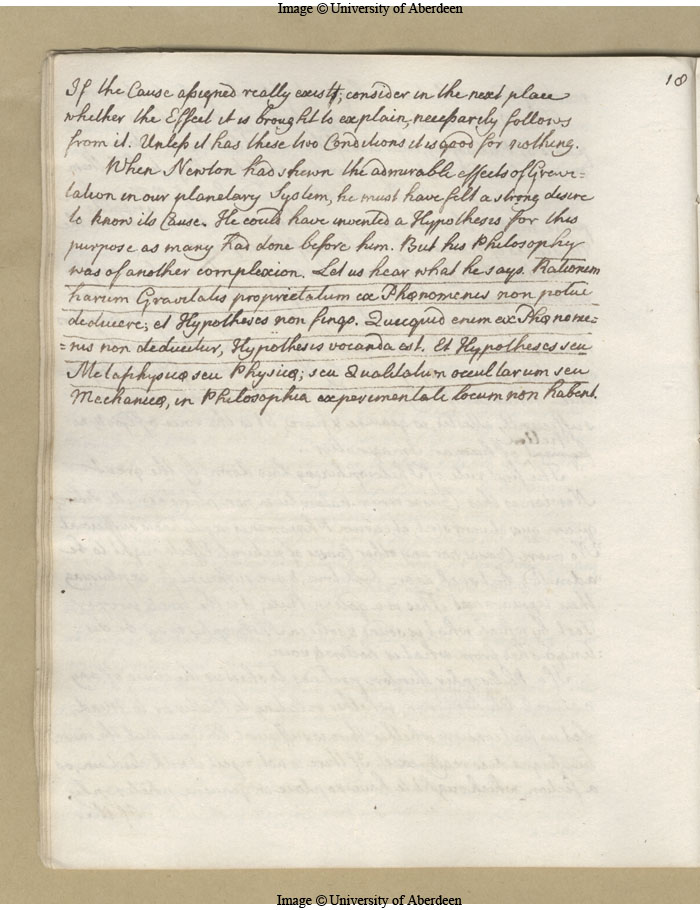 Image © University of Aberdeen
18
If the Cause assigned really exists, consider in the next place
whether the Effect it is brought to explain, necessarily follows
from it. Unless it has these two Conditions it is good for nothing.
When Newton had shewn the admirable effects of Gravi=
tation in our planetary System, he must have felt a strong desire
to know its Cause. He could have invented a Hypothesis for this
purpose as many had done before him. But his Philosophy
was of another complexion. Let us hear what he says. Rationem
harum Gravitatis proprietatum ex Phænomenis non potui
deducere; et Hypotheses non fingo. Quicquid enim ex Phænome=
=nis non deducitur, Hypothesis vocanda est. Et Hypotheses seu
Metaphysicæ seu Physicæ; seu Qualitatum occultarum seu
Mechanicæ, in Philosophia experimentali locum non habent.
Image © University of Aberdeen